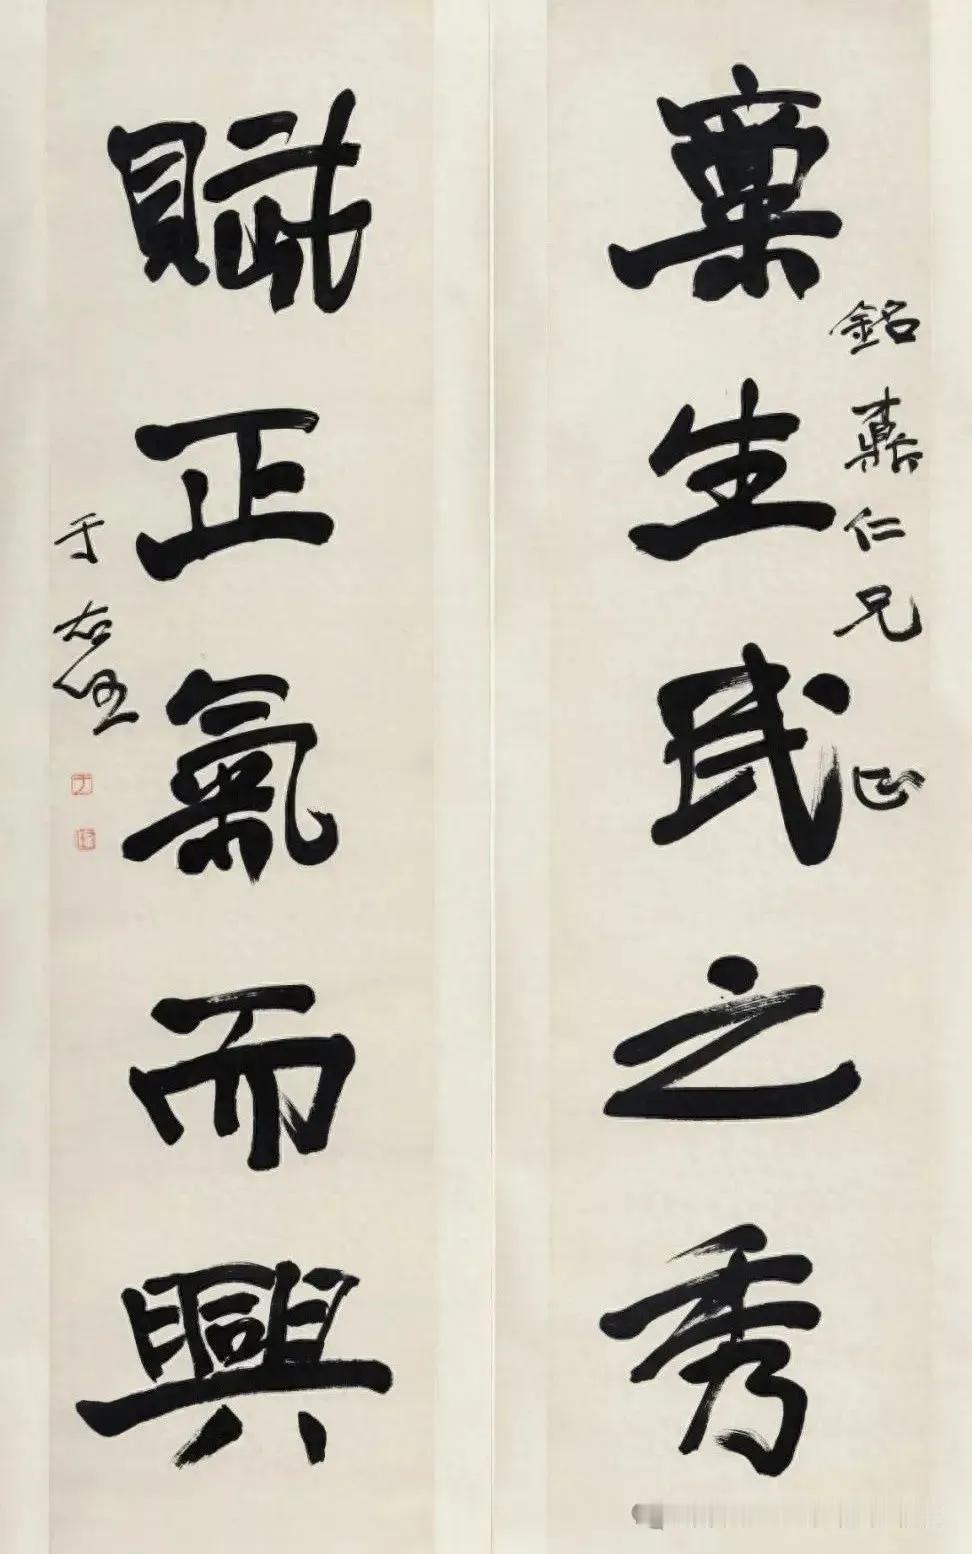 銘仁兄正
稟生民之秀
賦正氣而興
于右任